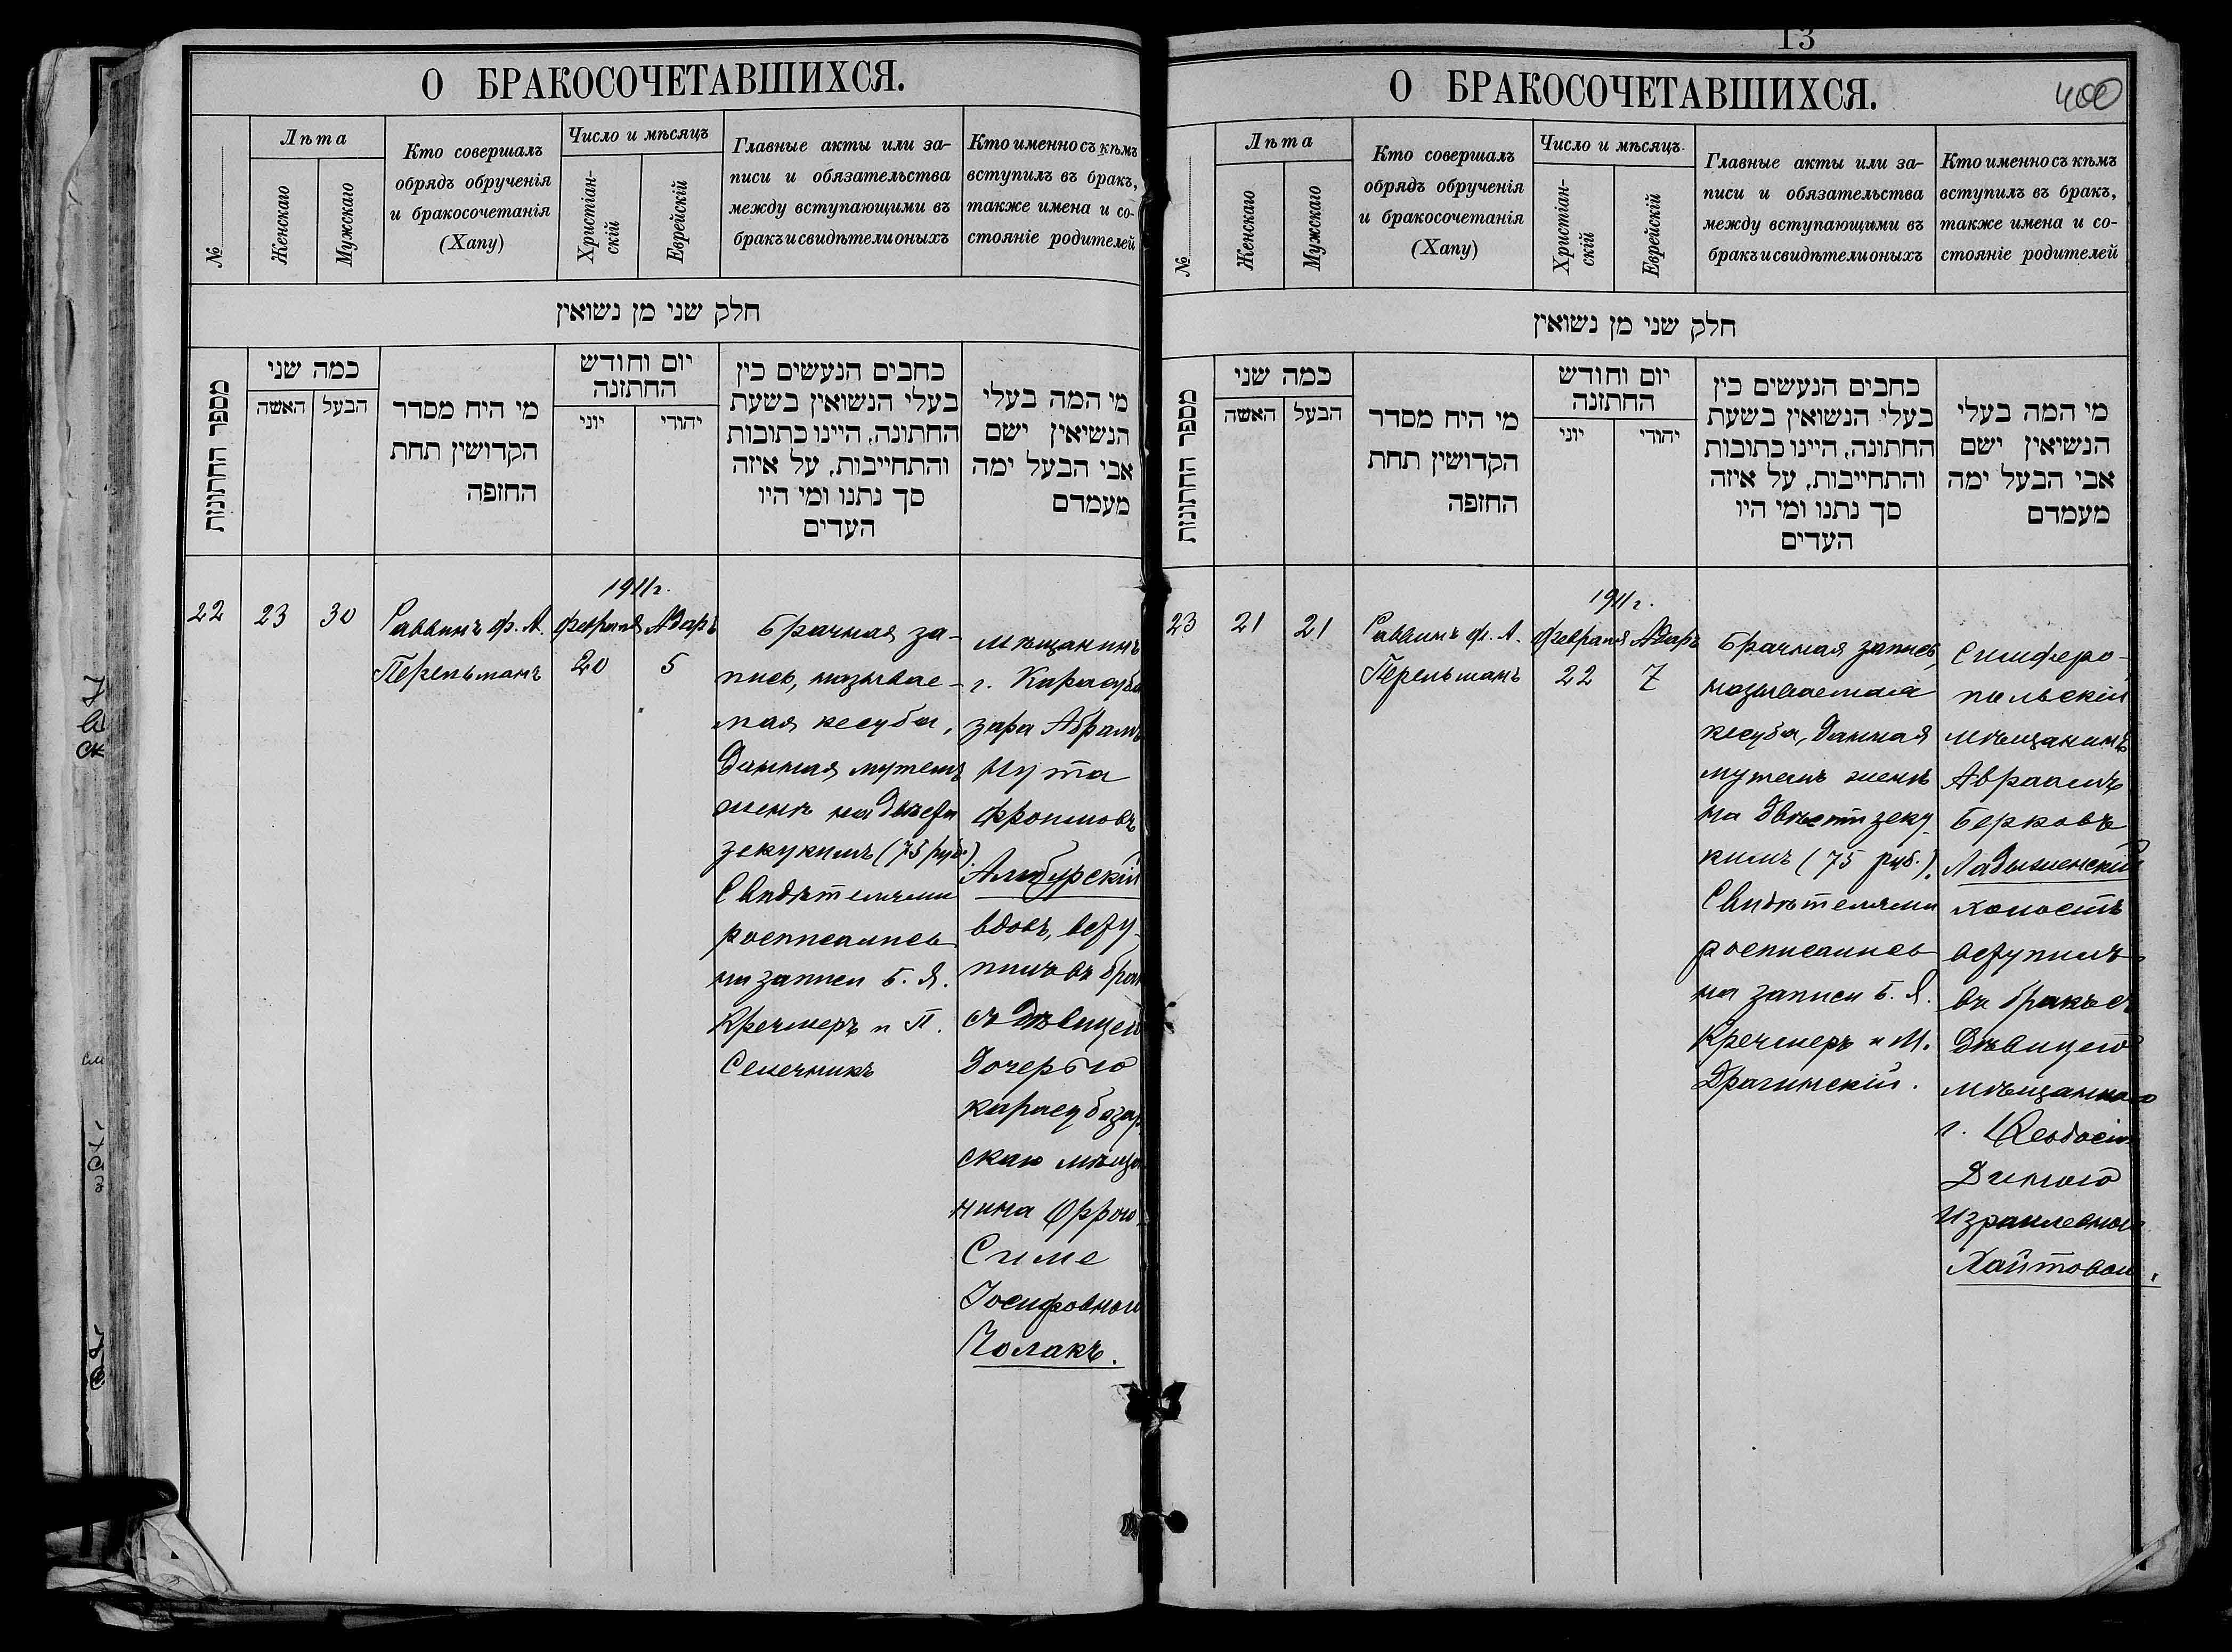 О БРАКОСОЧЕТАВШИХСЯ.
№
Лѣта
Женскаго
Мужскаго
Кто совершалъ
обрядъ обрученія
и бракосочетанія
(Хапу)
Число и мѣсяцъ
Христіан-
скій
Еврейскій
Главные акты или за-
писи и обязательства
между вступающими въ
бракъ и свидѣтели оныхъ
Кто именно съ кѣмъ
вступилъ въ бракъ,
также имена и со-
стояніе родителей
חלק שני מן נשואין
מספר החתונות
כמה שני
האשה
הבעל
מי היח מסדר
הקדושין תחת
החזפה
יום וחודש
החתזנה
יוני
יהודי
כחבים הנעשים כין
בעלי הנשואין בשעת
החתונה, היינו כתובות
והתחייבות, על איזה
סך נתנו ומי היו
העדים
מי המה בעלי
הנשיאין ישם
אבי הבעל ימה
מעמדם
22
23
30
Раввинъ Ф. А.
Перельманъ
1911 г.
Февраля
20
Адаръ
5
Брачная за-
пись, называе-
мая кесуба,
данная мужемъ
женѣ на двѣсти
зекукимъ (75 руб.).
Свидѣтелями
росписались
на записи Б. Я.
Кречмеръ и П.
Сапечникъ
мѣщанинъ
г. Карасуба
зара Абрамъ
Нута
Фроимовъ
Амбурскій
вдовъ, всту-
пилъ въ брак
съ дѣвицей
дочерью
карасубазар
скаго мѣща
нина Фрою
Симе
Іосифовной
Полакъ.
13
О БРАКОСОЧЕТАВШИХСЯ.
400
№
Лѣта
Женскаго
Мужскаго
Кто совершалъ
обрядъ обрученія
и бракосочетанія
(Хапу)
Число и мѣсяцъ
Христіан-
скій
Еврейскій
Главные акты или за-
писи и обязательства
между вступающими въ
бракъ и свидѣтели оныхъ
Кто именно съ кѣмъ
вступилъ въ бракъ,
также имена и со-
стояніе родителей
חלק שני מן נשואין
מספר החתונות
כמה שני
האשה
הבעל
מי היח מסדר
הקדושין תחת
החזפה
יום וחודש
החתזנה
יוני
יהודי
כחבים הנעשים כין
בעלי הנשואין בשעת
החתונה, היינו כתובות
והתחייבות, על איזה
סך נתנו ומי היו
העדים
מי המה בעלי
הנשיאין ישם
אבי הבעל ימה
מעמדם
23
21
21
Раввинъ Ф. А.
Перельманъ
1911 г.
Февраля
22
Адаръ
7
Брачная запись,
называемая
кесуба, данная
мужемъ женѣ
на двѣсти зеку
кимъ (75 руб.).
Свидѣтелями
росписались
на записи Б. Я.
Кречмеръ и М.
Драгинскій.
Симферо-
польскій
мѣщанинъ
Авраамъ
Берковъ
Ладыженскій
холостъ
вступилъ
въ бракъ съ
дѣвицею
мѣщанкою
г. Ѳеодосіи
Диною
Израилевной
Хаитовой.